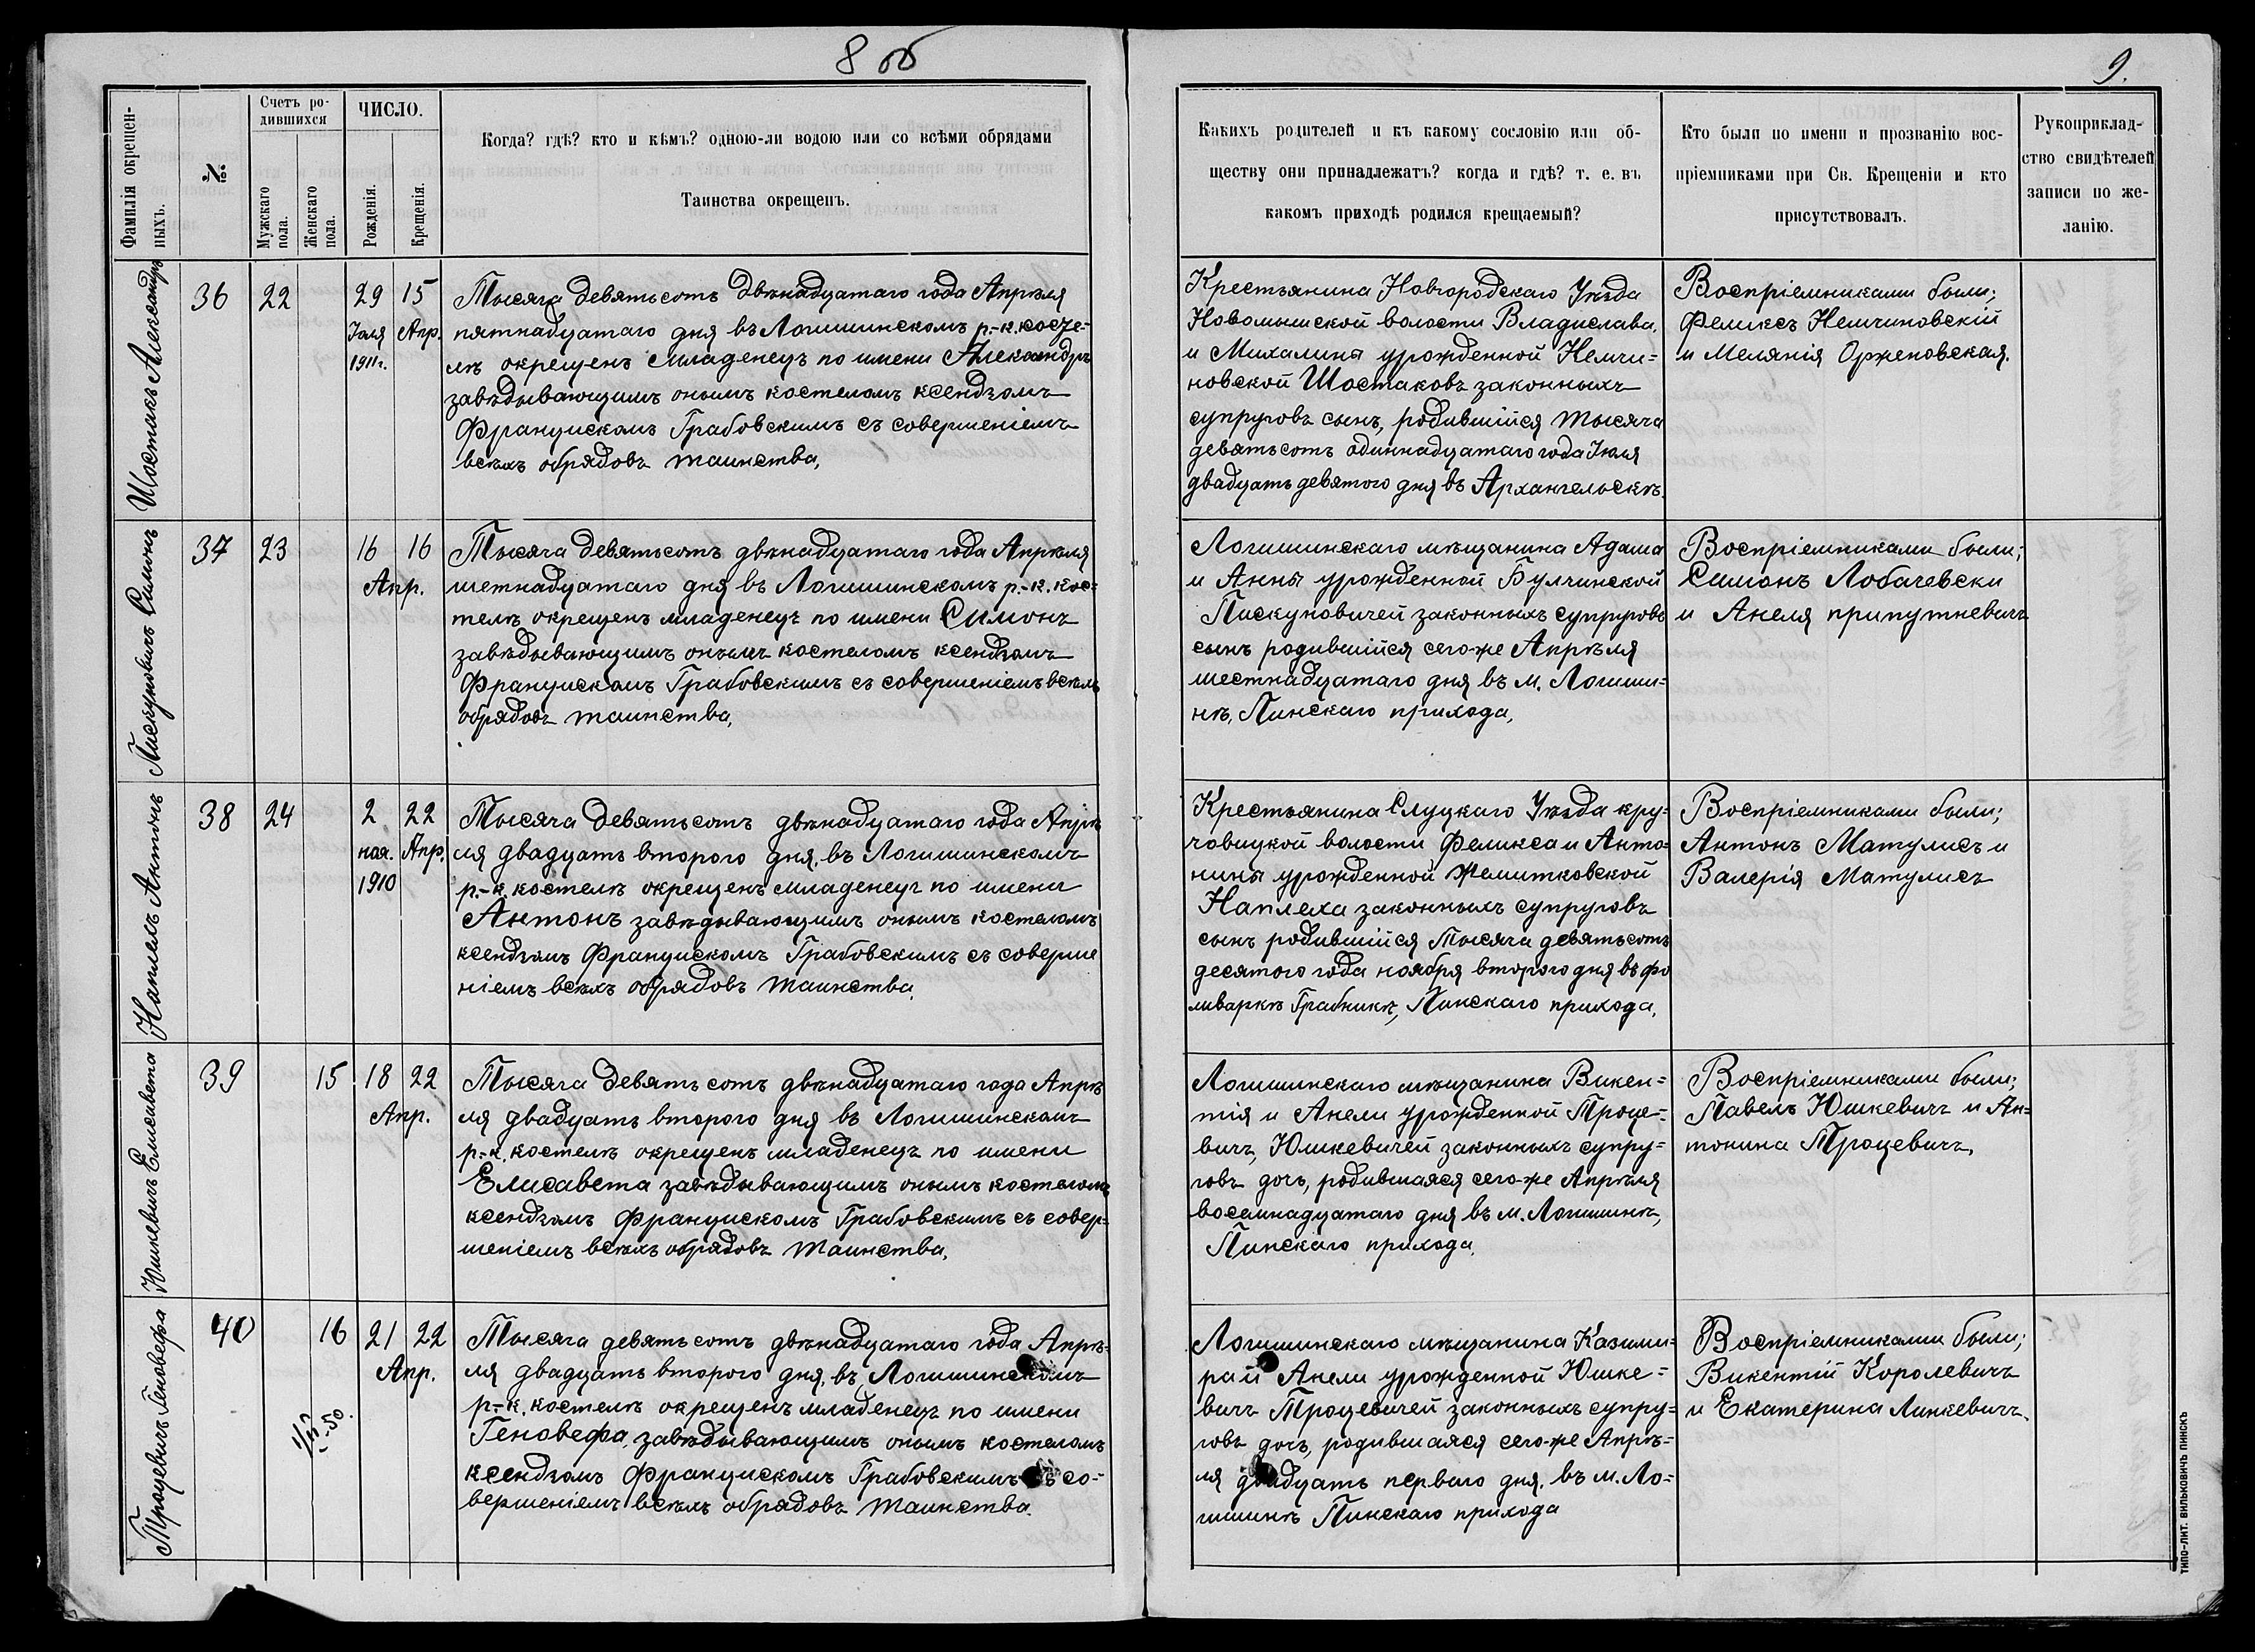 8 об
9.
Фамилія окрещен-
ныхъ.
№
Счетъ ро-
дившихся
Мужскаго
пола.
Женскаго
пола.
ЧИСЛО.
Рожденія.
Крещенія.
Когда? гдѣ? кто и кѣмъ? одною-ли водою или со всѣми обрядами
Таинства окрещенъ.
Какихъ родителей и къ какому сословію или об-
ществу они принадлежатъ? когда и гдѣ? т. е. въ
какомъ приходѣ родился крещаемый?
Кто были по имени и прозванію вос-
пріемниками при Св. Крещеніи и кто
присутствовалъ.
Рукоприклад-
ство свидѣтелей
записи по же-
ланію.
Шостакъ Александръ
36
22
29
Іюля
1911 г.
15
Апр.
Тысяча девятьсотъ двѣнадцатаго года Апрѣля
пятнадцатаго дня въ Логишинскомъ р.-к. косте-
лѣ окрещенъ младенецъ по имени Александръ
завѣдывающимъ онымъ костеломъ ксендзомъ
Францискомъ Грабовскимъ съ совершеніемъ
всѣхъ обрядовъ таинства.
Крестьянина Новгородскаго Уѣзда
Новомышской волости Владислава
и Михалины урожденной Немчи=
новской Шостаковъ законныхъ
супруговъ сынъ, родившійся тысяча
девятьсотъ одиннадцатаго года Іюля
двадцать девятого дня въ Архангельскѣ.
Воспріемниками были;
Феликсъ Немчиновскій
и Мелянія Орженовская.
Пискуновичъ Симонъ
37
23
16
16
Апр.
Тысяча девятьсотъ двѣнадцатаго года Апрѣля
шетнадцатаго дня въ Логишинскомъ р.-к. кос=
телѣ окрещенъ младенецъ по имени Симонъ
завѣдывающимъ онымъ костеломъ ксендзомъ
Францискомъ Грабовскимъ съ совершеніемъ всѣхъ
обрядовъ таинства.
Логишинскаго мѣщанина Адама
и Анны урожденной Булчинской
Пискуновичей законныхъ супруговъ
сынъ родившійся сего-же Апрѣля
шестнадцатаго дня въ м. Логиши=
нѣ, Пинскаго прихода,
Воспріемниками были;
Симонъ Лобачевски
и Анеля припутневичъ
Наплехъ Антонъ
38
24
2
ноя.
1910
22
Апр.
Тысяча девятьсотъ двѣнадцатаго года Апрѣ
ля двадцать второго дня, въ Логишинскомъ
р.-к. костелѣ окрещенъ младенецъ по имени
Антонъ завѣдывающимъ онымъ костеломъ
ксендзомъ Францискомъ Грабовскимъ съ соверше
ніемъ всѣхъ обрядовъ таинства.
Крестьянина Слуцкаго Уѣзда кру=
човицкой волости Феликса и Анто=
нины урожденной Жемитковской
Наплеха законныхъ супруговъ
сынъ родившійся тысяча девятьсотъ
десятого года ноября второго дня въ фо
льваркѣ Грабникѣ, Пинскаго прихода,
Воспріемниками были;
Антонъ Матулисъ и
Валерія Матулисъ
Юшкевичъ Елисавета
39
15
18
22
Апр.
Тысяча девятьсотъ двѣнадцатаго года Апрѣ
ля двадцать второго дня въ Логишинскомъ
р.-к. костелѣ окрещенъ младенецъ по имени
Елисавета завѣдывающимъ онымъ костеломъ
ксендзомъ Францискомъ Грабовскимъ съ совер=
шеніемъ всѣхъ обрядовъ таинства.
Логишинскаго мѣщанина Викен=
тія и Анели урожденной Троце=
вичъ, Юшкевичей законныхъ супру=
говъ дочь, родившаяся сего-же Апрѣля
восемнадцатаго дня въ м. Логишинѣ,
Пинскаго прихода.
Воспріемниками были;
Павелъ Юшкевичъ и Ан=
тонина Троцевичъ.
Троцевичъ Геновефа
40
16
21
22
Апр.
Тысяча девятьсотъ двѣнадцатаго года Апрѣ-
ля двадцать второго дня, въ Логишинскомъ
р.-к. костелѣ окрещенъ младенецъ по имени
Геновефа, завѣдывающимъ онымъ костеломъ
ксендзомъ Францискомъ Грабовскимъ съ со-
вершеніемъ всѣхъ обрядовъ таинства.
Логишинскаго мѣщанина Казими=
ра и Анели урожденной Юшке=
вичъ Троцевичей законныхъ супру=
говъ дочь, родившаяся сего-же Апрѣ=
ля двадцать перваго дня. въ м. Ло=
гишинѣ Пинскаго прихода
Воспріемниками были;
Викентій Королевичъ
и Екатерина Линкевичъ.
ТИПО-ЛИТ. ВИЛЬКОВИЧЪ ПИНСКЪ